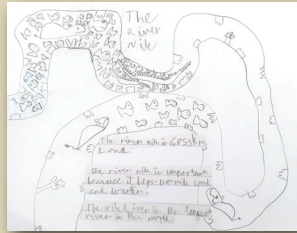 The
river
nile
The river nile is 6,853 km
Land
the river nile is important
because it helps
and water.
The nile river is the longest
river in the world.